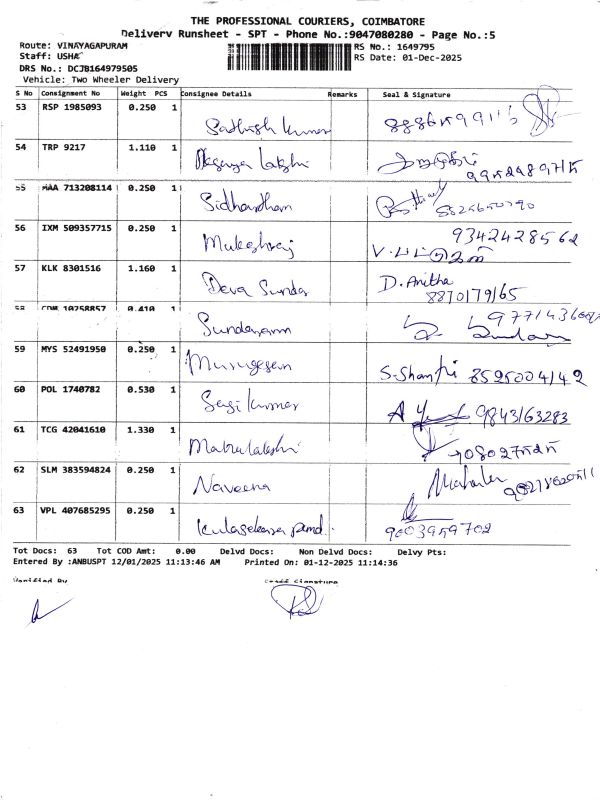 THE PROFESSIONAL COURIERS, COIMBATORE
Delivery Runsheet - SPT - Phone No.:9047080280 - Page No.:5
Route: VINAYAGAPURAM
Staff: USHA
DRS No.: DCJB164979505
Vehicle: Two Wheeler Delivery
RS No.: 1649795
RS Date: 01-Dec-2025
S No Consignment No Weight PCS Consignee Details Remarks Seal & Signature
53 RSP 1985093 0.250 1
Sathish Kumar
54 TRP 9217 1.110 1
Lakshi
55 MAA 713208114 0.250 1
Sidhardhan
56 IXM 509357715 0.250 1
Mukeshraj 9342428562
57 KLK 8301516 1.160 1
Deva Sundar D. Anitha
8870179165
58 COM 10758857 0.410 1
Sundaram
59 MYS 52491950 0.250 1
Murugesan S. Shanthi 8525004142
60 POL 1740782 0.530 1
Sasi Kumar 9843163283
61 TCG 42041610 1.330 1
62 SLM 383594824 0.250 1
Naveena
63 VPL 407685295 0.250 1
9003959702
Tot Docs: 63 Tot COD Amt: 0.00 Delvd Docs: Non Delvd Docs: Delvy Pts:
Entered By :ANBUSPT 12/01/2025 11:13:46 AM Printed On: 01-12-2025 11:14:36
Verified By Staff Signature